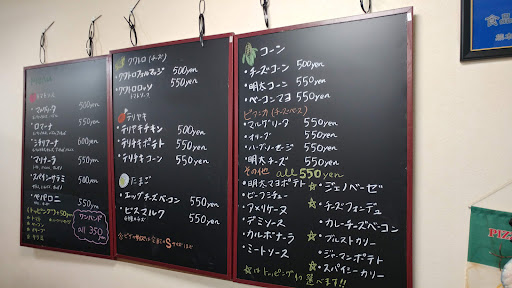 ・マルゲリータ 500yen
・ロマーナ 550yen
・シチリアーナ 600yen
・マリナーラ 550yen
・スパイシーサラミ 550yen
・ペパロニ 550yen
all 350yen
クワトロ(チーズ)
・クワトロフォルマッジ 500yen
・クワトロロッソ 550yen
トマトソース
テリヤキ
・テリヤキチキン 500yen
・テリチキポテト 550yen
・テリチキコーン 550yen
たまご
・エッグチーズベーコン 550yen
・ビスマルク 550yen
コーン
・チーズコーン 500yen
・明太コーン 550yen
・ベーコンマヨ 550yen
ビアンカ(チーズベース)
・マルゲリータ 550yen
・オリーブ 550yen
・ハーブソーセージ 550yen
・明太チーズ 550yen
その他 all 550yen
・明太マヨポテト
・ビーフシチュー
・アメリケーヌ
・デミソース
・カルボナーラ
・ミートソース
☆・ジェノベーゼ
☆・チーズフォンデュ
・カレーチーズベーコン
☆・ブルストカリー
・ジャーマンポテト
☆・スパイシーカリー
☆はトッピング1つ選べます!!
食品
PIZ